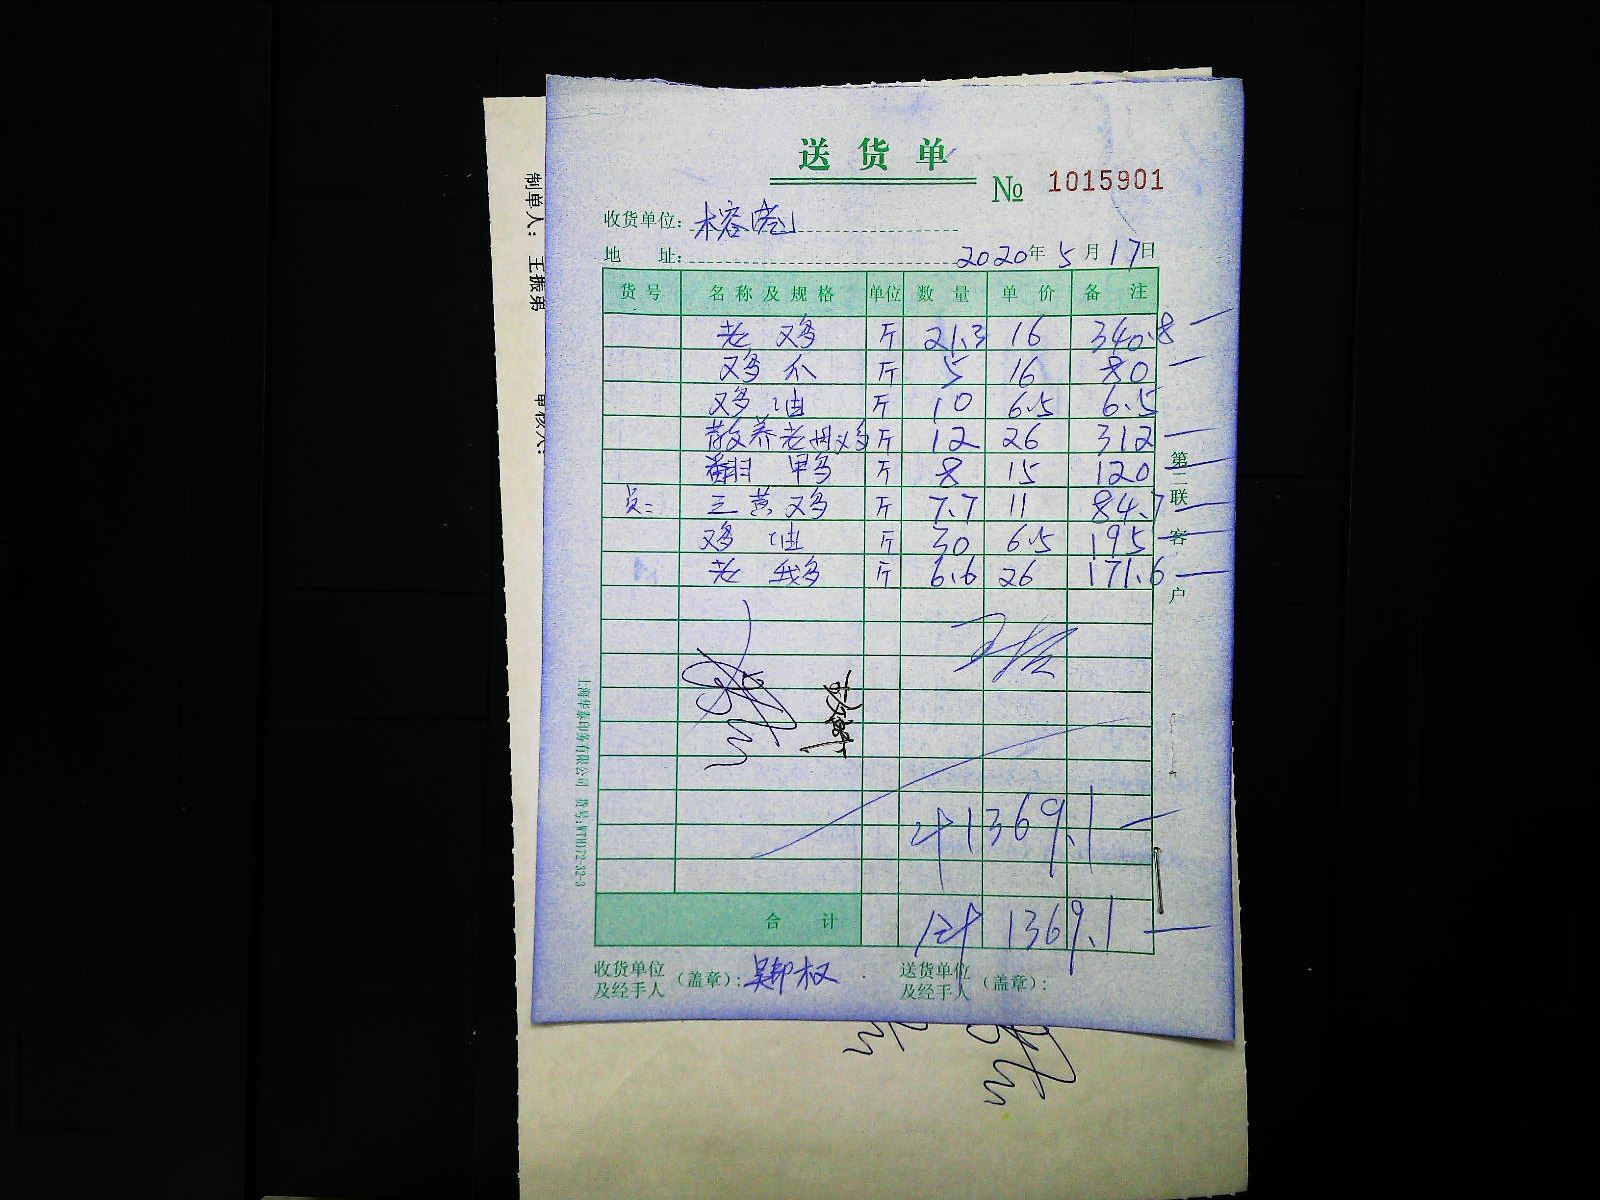 送货单
№ 1015901
收货单位: 榕苑
地 址: 2020年5月17日
货号 名称及规格 单位 数量 单价 备注
老鸡 斤 21.3 16 340.8
鸡爪 斤 5 16 80
鸡油 斤 10 6.5 6.5
散养老母鸡 斤 12 26 312
翻甲鸭 斤 8 15 120
员: 三黄鸡 斤 7.7 11 84.7
鸡油 斤 30 6.5 195
老鹅 斤 6.6 26 171.6
计1369.1
合计 合计 1369.1
收货单位及经手人(盖章): 吴却权 送货单位及经手人(盖章):
第二联 客户
上海华泰印务有限公司 货号:WTH)72-32-3
制单人: 王振弟
审核人: